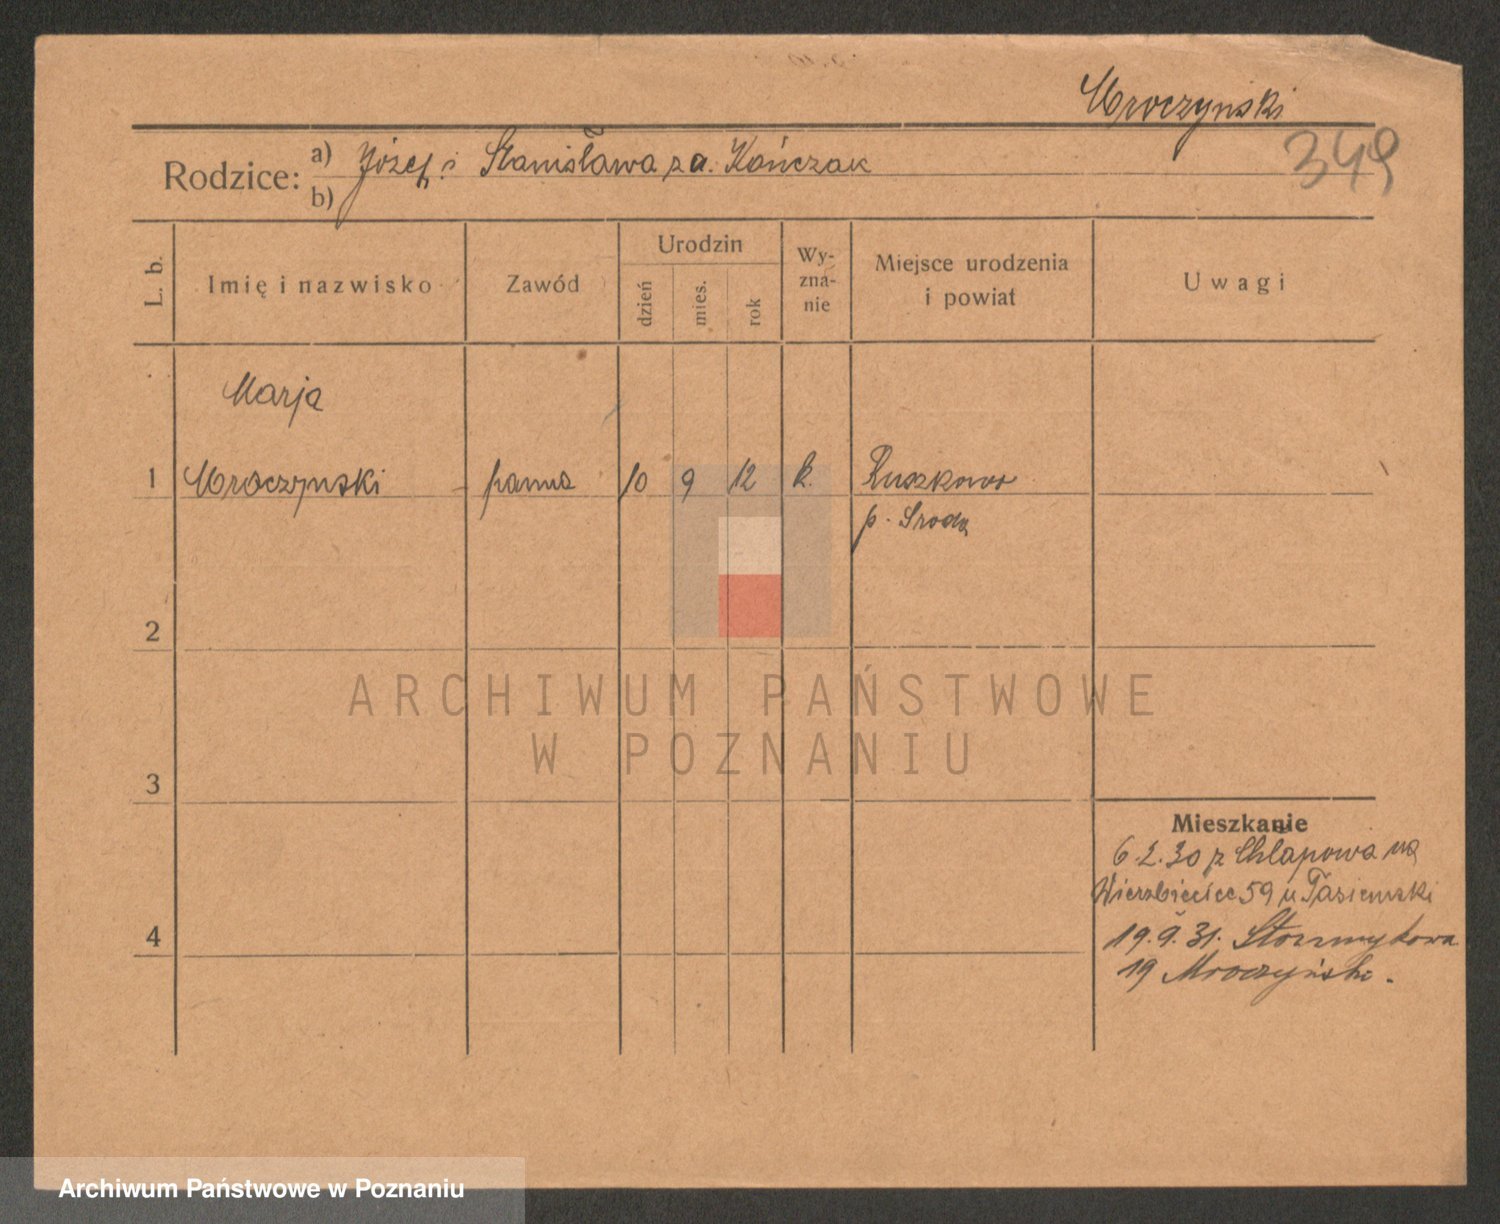 Mroczynski
349
Rodzice: a) Józef i Stanisława z a. Kończak
b)
L. b.
Imię i nazwisko
Zawód
Urodzin
dzień
mies.
rok
Wy-
zna-
nie
Miejsce urodzenia
i powiat
Uwagi
Marja
1 Mroczynski panna 10 9 12 k. Ruszkowo
p. Sroda
2
3
4
Mieszkanie
6.2.30 z Chlapowa na
Wierzbięcice 59 u Tasiemski
19.9.31.
19 Mroczyński.
ARCHIWUM PAŃSTWOWE
W POZNANIU
Archiwum Państwowe w Poznaniu